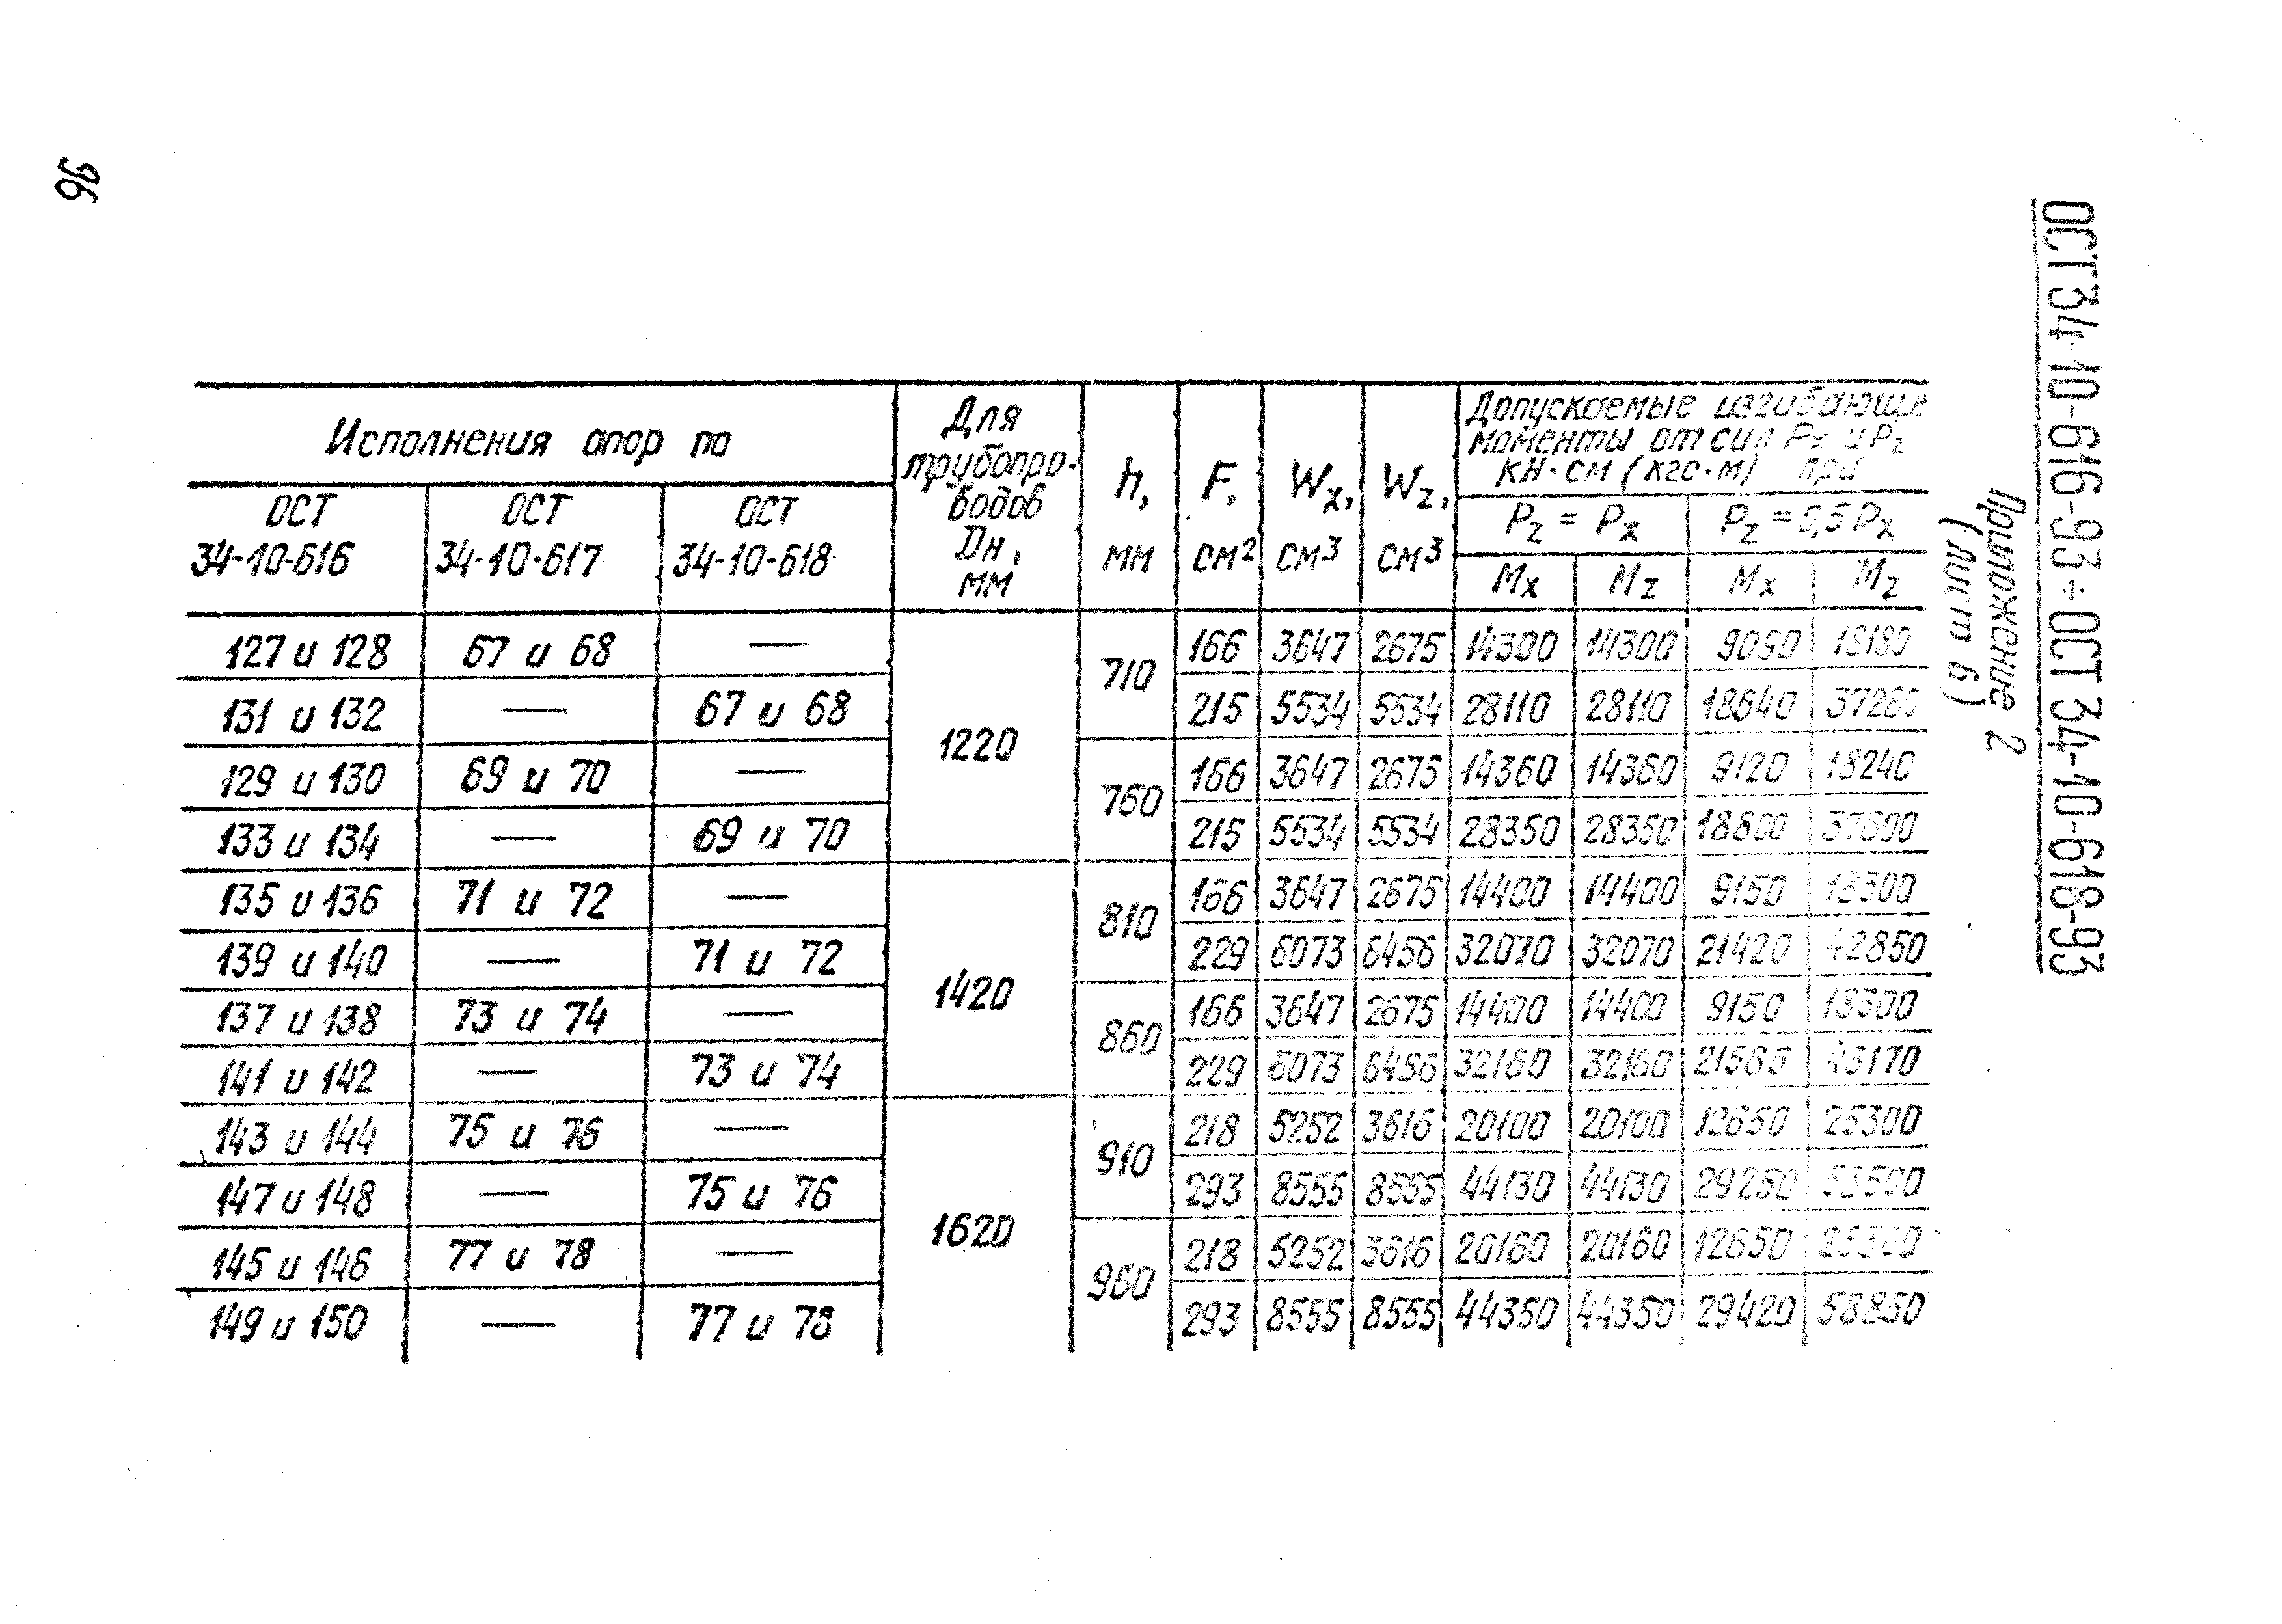 96
ОСТ 34-10-616-93÷ОСТ 34-10-618-93
Приложение 2
(лист 6)
Исполнения опор по
Для трубопро-водов Dн, мм
h, мм
F, см²
Wx, см³
Wz, см³
Допускаемые изгибающие
моменты от сил Px и Pz
кН·см (кгс·м) при
ОСТ 34-10-616
ОСТ 34-10-617
ОСТ 34-10-618
Pz = Px
Pz = 0,5 Px
Mx Mz Mx Mz
127 и 128 67 и 68 — 1220 710 166 3647 2675 14300 14300 9090 18180
131 и 132 — 67 и 68 215 5534 5534 28110 28110 18640 37280
129 и 130 69 и 70 — 760 166 3647 2675 14360 14360 9120 18240
133 и 134 — 69 и 70 215 5534 5534 28350 28350 18800 37600
135 и 136 71 и 72 — 1420 810 166 3647 2675 14400 14400 9150 18300
139 и 140 — 71 и 72 229 6073 6456 32070 32070 21420 42850
137 и 138 73 и 74 — 860 166 3647 2675 14400 14400 9150 18300
141 и 142 — 73 и 74 229 6073 6456 32160 32160 21585 43170
143 и 144 75 и 76 — 1620 910 218 5252 3616 20100 20100 12650 25300
147 и 148 — 75 и 76 293 8555 8555 44130 44130 29250
145 и 146 77 и 78 — 960 218 5252 3616 20160 20160 12650 25300
149 и 150 — 77 и 78 293 8555 8555 44350 44350 29420 58850